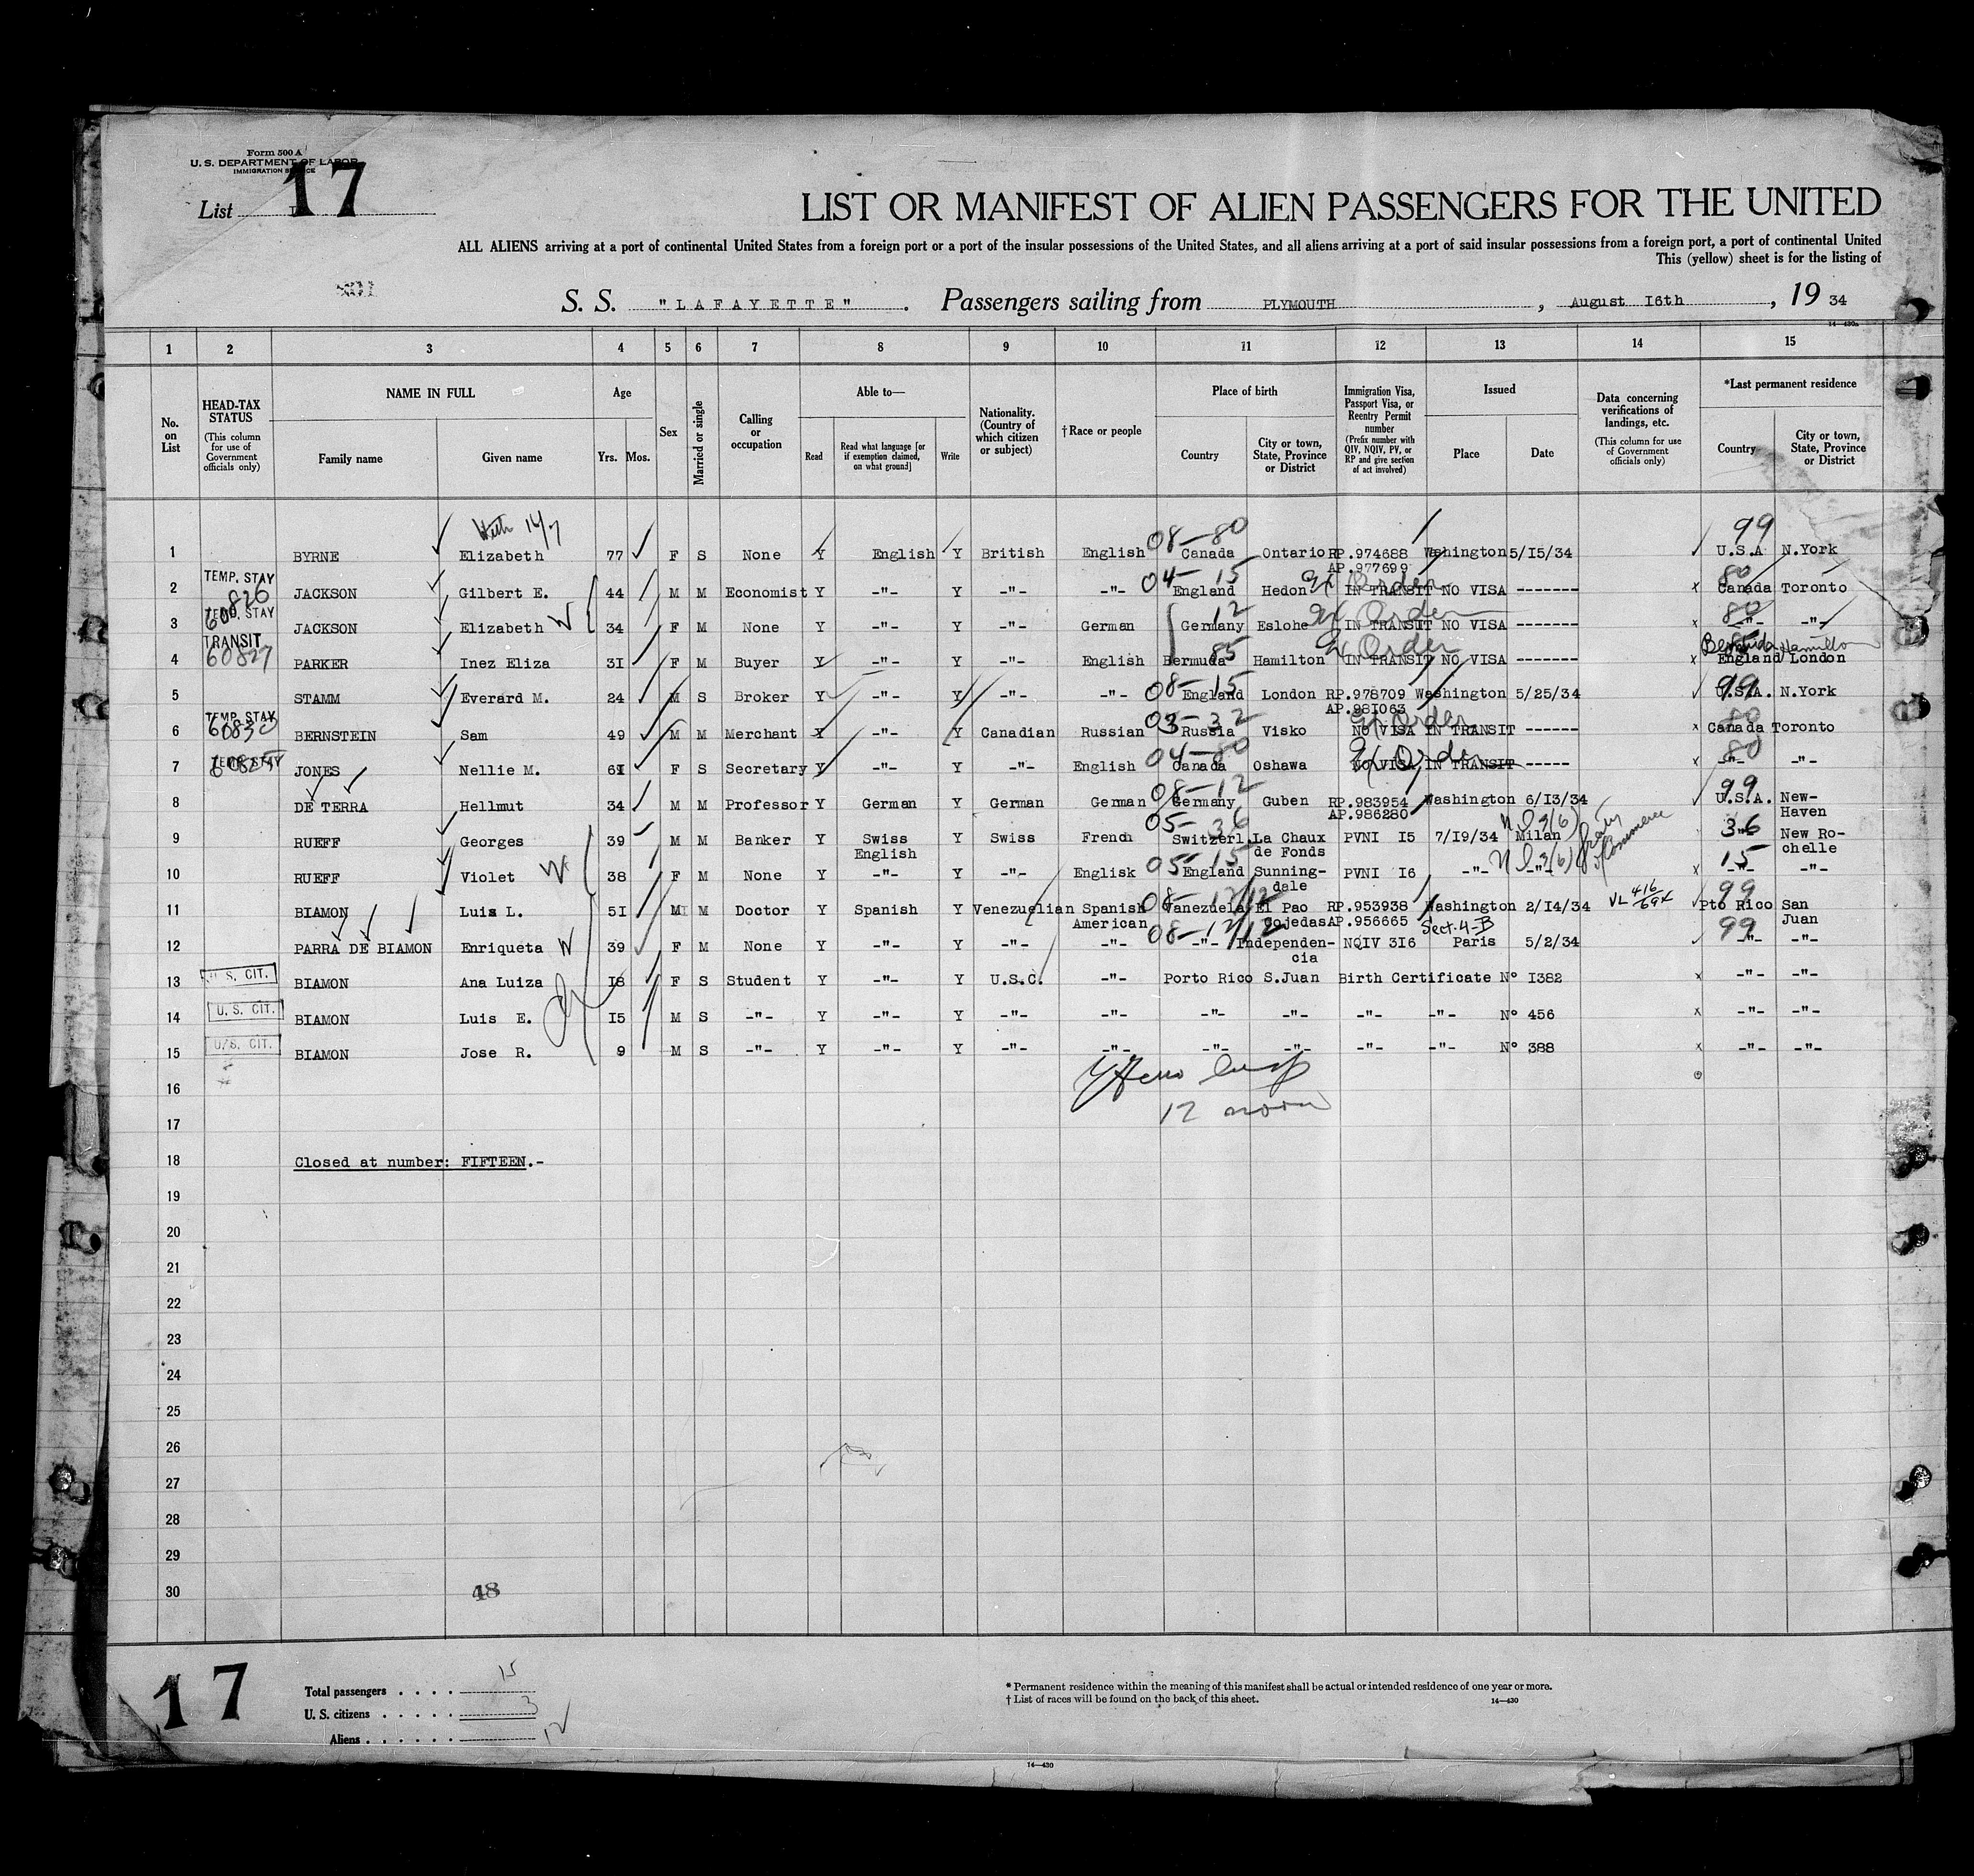 Form 500 A
U. S. DEPARTMENT OF LABOR
IMMIGRATION SERVICE
List 17
LIST OR MANIFEST OF ALIEN PASSENGERS FOR THE UNITED
ALL ALIENS arriving at a port of continental United States from a foreign port or a port of the insular possessions of the United States, and all aliens arriving at a port of said insular possessions from a foreign port, a port of continental United
This (yellow) sheet is for the listing of
S. S. "LAFAYETTE". Passengers sailing from PLYMOUTH, August I6th, 19 34
14-430a
1 2 3 4 5 6 7 8 9 10 11 12 13 14 15
No. on List
HEAD-TAX STATUS (This column for use of Government officials only)
NAME IN FULL Family name Given name
Age Yrs. Mos.
Sex
Married or single
Calling or occupation
Able to— Read Read what language [or if exemption claimed, on what ground] Write
Nationality. (Country of which citizen or subject)
†Race or people
Place of birth Country City or town, State, Province or District
Immigration Visa, Passport Visa, or Reentry Permit number (Prefix number with QIV, NQIV, PV, or RP and give section of act involved)
Issued Place Date
Data concerning verifications of landings, etc. (This column for use of Government officials only)
*Last permanent residence Country City or town, State, Province or District
99
1 BYRNE Elizabeth 77 F S None Y English Y British English 08-80 Canada Ontario RP.974688 Washington 5/I5/34 U.S.A N.York
AP.977699
TEMP. STAY 04-15 80
2 60826 JACKSON Gilbert E. 44 M M Economist Y -"- Y -"- -"- England Hedon IN TRANSIT NO VISA ------- x Canada Toronto
TEMP. STAY 12 Ex Order 80
3 JACKSON Elizabeth W 34 F M None Y -"- Y -"- German Germany Eslohe IN TRANSIT NO VISA ------- x -"- -"-
TRANSIT Ex Order Bermuda Hamilton
4 60827 PARKER Inez Eliza 3I F M Buyer Y -"- Y -"- English Bermuda 85 Hamilton IN TRANSIT NO VISA ------- x England London
5 STAMM Everard M. 24 M S Broker Y -"- Y -"- -"- 08-15 England London RP.978709 Washington 5/25/34 99 U.S.A. N.York
AP.98I063
TEMP. STAY 03-32 Ex Order 80
6 BERNSTEIN Sam 49 M M Merchant Y -"- Y Canadian Russian Russia Visko NO VISA IN TRANSIT ------ x Canada Toronto
TEMP STAY 04-80 Ex Order 80
7 JONES Nellie M. 6I F S Secretary Y -"- Y -"- English Canada Oshawa NO VISA IN TRANSIT ----- x -"- -"-
08-12 99
8 DE TERRA Hellmut 34 M M Professor Y German Y German German Germany Guben RP.983954 Washington 6/I3/34 U.S.A. New-
AP.986280 Haven
05-36 36
9 RUEFF Georges 39 M M Banker Y Swiss Y Swiss French Switzerl. La Chaux PVNI I5 7/I9/34 Milan New Ro-
English de Fonds chelle
05-15 15
10 RUEFF Violet W 38 F M None Y -"- Y -"- Englisk England Sunning- PVNI I6 -"- -"- x -"- -"-
dale
08-12 416 99
11 BIAMON Luis L. 5I M M Doctor Y Spanish Y Venezuelian Spanish Venezuela El Pao RP.953938 Washington 2/I4/34 Pto Rico San
American Cojedas AP.956665 Sect. 4-B Juan
99
12 PARRA DE BIAMON Enriqueta W 39 F M None Y -"- Y -"- -"- -"- Independen- NQIV 3I6 Paris 5/2/34 -"- -"-
cia
13 U. S. CIT. BIAMON Ana Luiza I8 F S Student Y -"- Y U.S.C. -"- Porto Rico S.Juan Birth Certificate N° I382 x -"- -"-
14 U. S. CIT. BIAMON Luis E. I5 M S -"- Y -"- Y -"- -"- -"- -"- -"- -"- N° 456 x -"- -"-
15 U. S. CIT. BIAMON Jose R. 9 M S -"- Y -"- Y -"- -"- -"- -"- -"- -"- N° 388 x -"- -"-
16
12 noon
17
18 Closed at number: FIFTEEN.-
19
20
21
22
23
24
25
26
27
28
29
30
48
17
Total passengers . . . . 15
U. S. citizens . . . . . 3
Aliens . . . . . . 12
* Permanent residence within the meaning of this manifest shall be actual or intended residence of one year or more.
† List of races will be found on the back of this sheet.
14—430
14—430